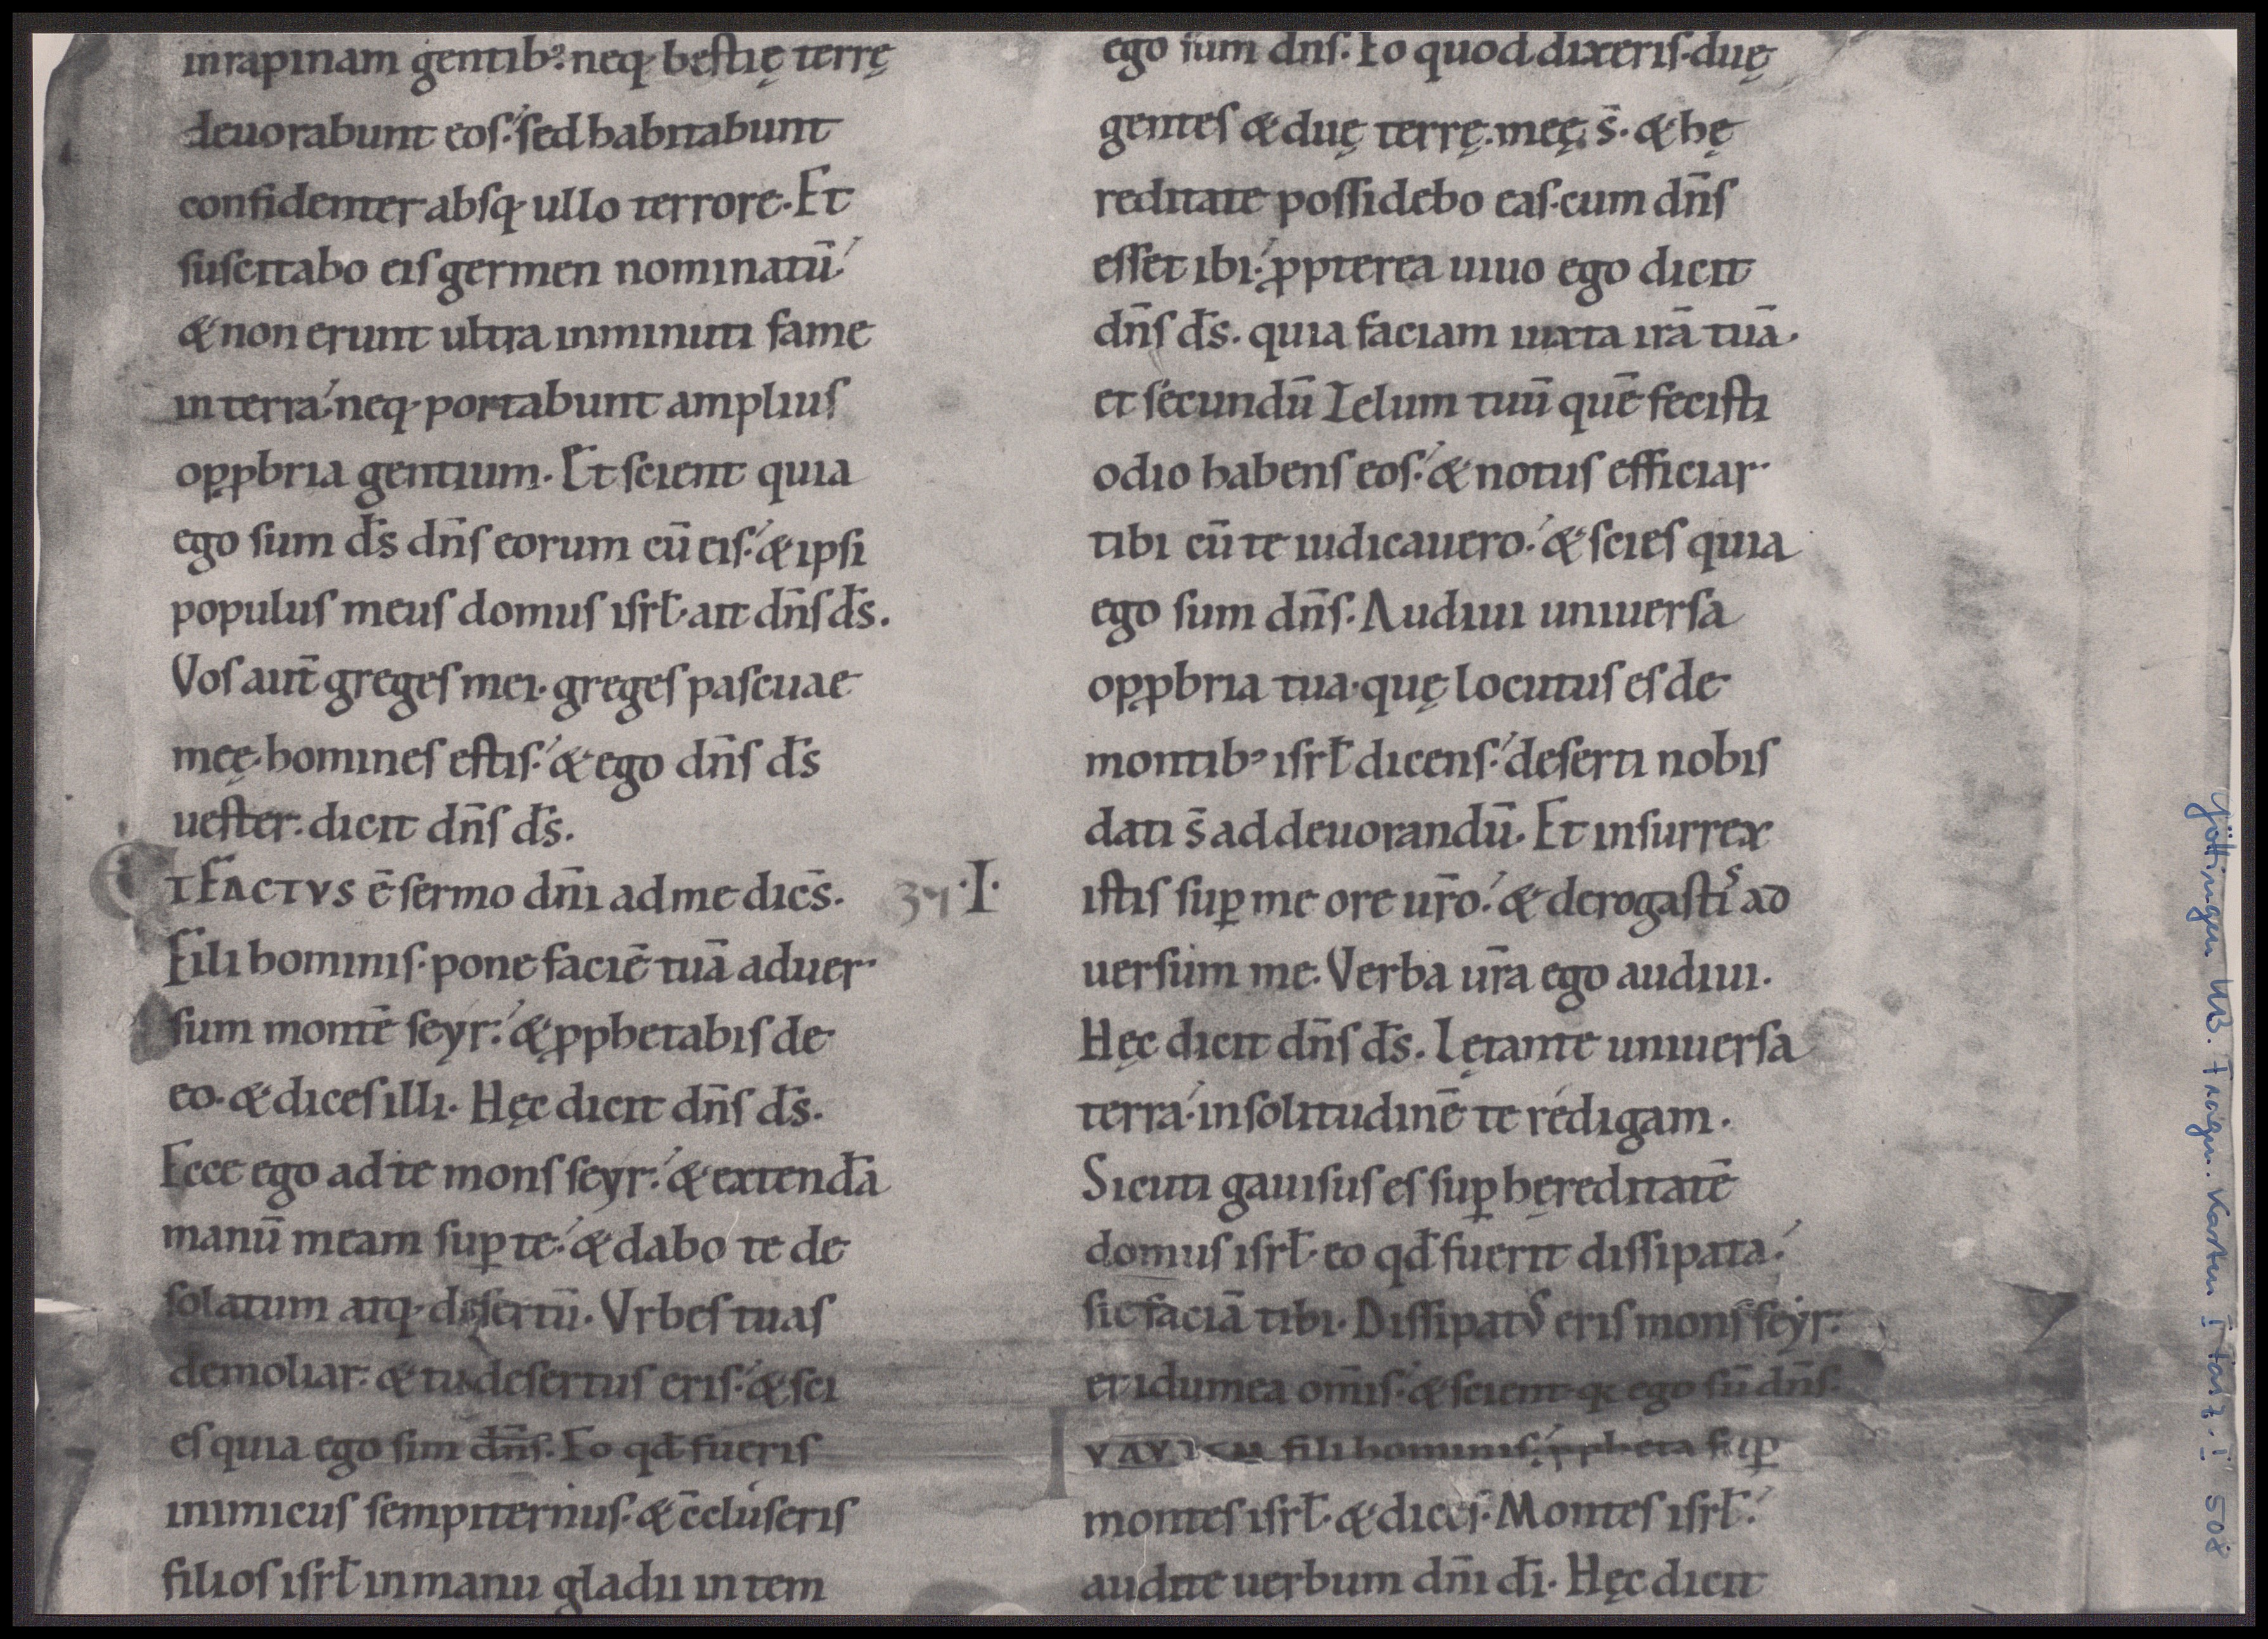 in rapinam gentib; neq; bestię terrę
deuorabunt eos. sed habitabunt
confidenter absq; ullo terrore. Et
suscitabo eis germen nominatū
& non erunt ultra inminuti fame
in terra. neq; portabunt amplius
opꝓbria gentium. Et scient quia
ego sum d̄s dn̄s eorum cū eis. & ipsi
populus meus domus isrł. ait dn̄s d̄s.
Vos aut̄ greges mei. greges pascuae
meę. homines estis. & ego dn̄s d̄s
uester. dicit dn̄s d̄s.
ET FACTVS ē sermo dn̄i ad me dicēs.
Fili hominis. pone faciē tuā aduer
sum montē seyr. & ꝓphetabis de
eo. & dices illi. Hęc dicit dn̄s d̄s.
Ecce ego ad te mons seyr. & extendā
manū meam suꝑ te. & dabo te de
solatum atq; desertū. Vrbes tuas
demoliar. & tu desertus eris. & sci
es quia ego sum dn̄s. Eo qd̄ fueris
inimicus sempiternus. & c̄cluseris
filios isrł in manu gladii in tem
37 .I.
ego sum dn̄s. Eo quod dixeris. duę
gentes & duę terrę. meę s̄. & hę
reditate possidebo eas. cum dn̄s
esset ibi. ꝓpterea uiuo ego dicit
dn̄s d̄s. quia faciam iuxta irā tuā.
et secundū zelum tuū quē fecisti
odio habens eos. & notus efficiar
tibi cū te iudicauero. & scies quia
ego sum dn̄s. Audiui uniuersa
opꝓbria tua. quę locutus es de
montib; isrł dicens. deserti nobis
dati s̄ ad deuorandū. Et insurrex
istis suꝑ me ore ur̄o. & derogastis ad
uersum me. Verba ur̄a ego audiui.
Hęc dicit dn̄s d̄s. Lętante uniuersa
terra. in solitudinē te redigam.
Sicuti gauisus es suꝑ hęreditatē
domus isrł. eo qd̄ fuerit dissipata.
sic faciā tibi. Dissipatus eris mons seyr.
et idumea om̄is. & scient q̄ ego sū dn̄s.
fili hominis. ꝓpheta suꝑ
montes isrł. & dices. Montes isrł.
audite uerbum dn̄i d̄i. Hęc dicit
Göttingen UB. Fragm. Karton I Fasz. I 508